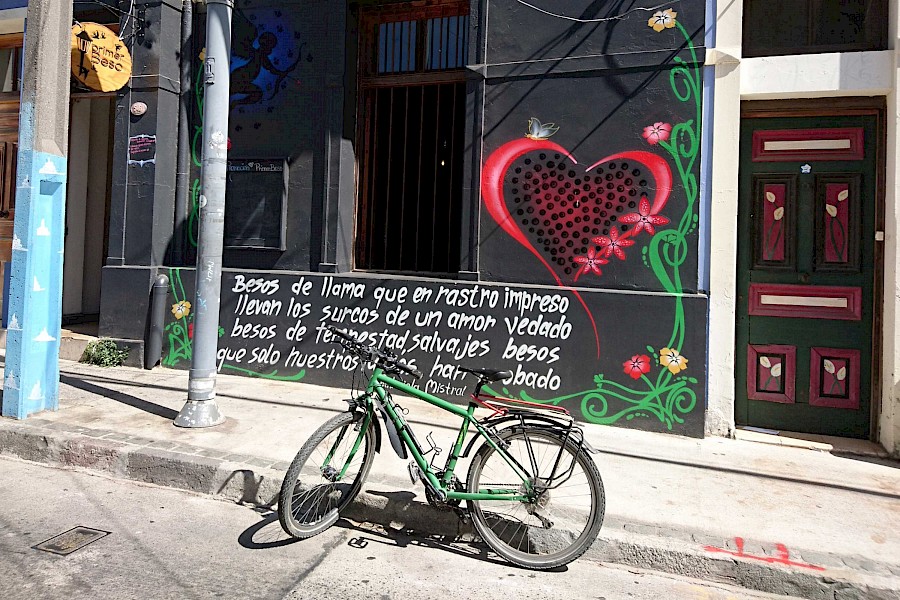 primer
Beso
Primer Beso
Besos de llama que en rastro impreso
llevan los surcos de un amor vedado
besos de tempestad, salvajes besos
que solo nuestros han
Mistral